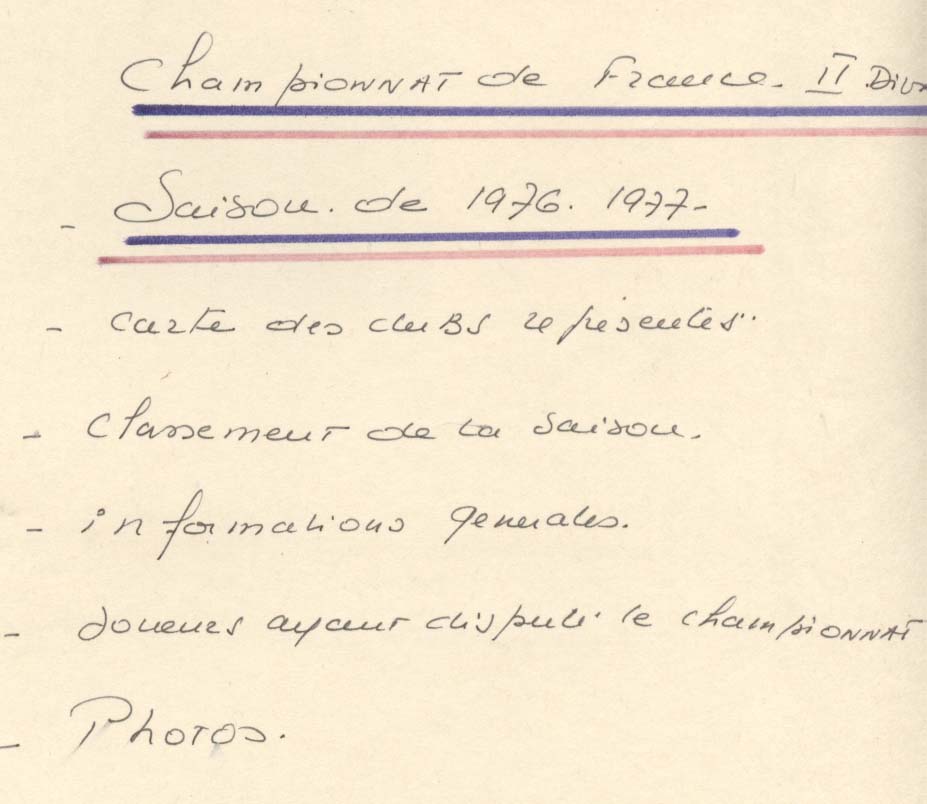 Championnat de France. II Div
- Saison. de 1976. 1977-
- Carte des clubs représentés.
- Classement de la saison.
- informations generales.
- Joueurs ayant disputé le championnat
- Photos.